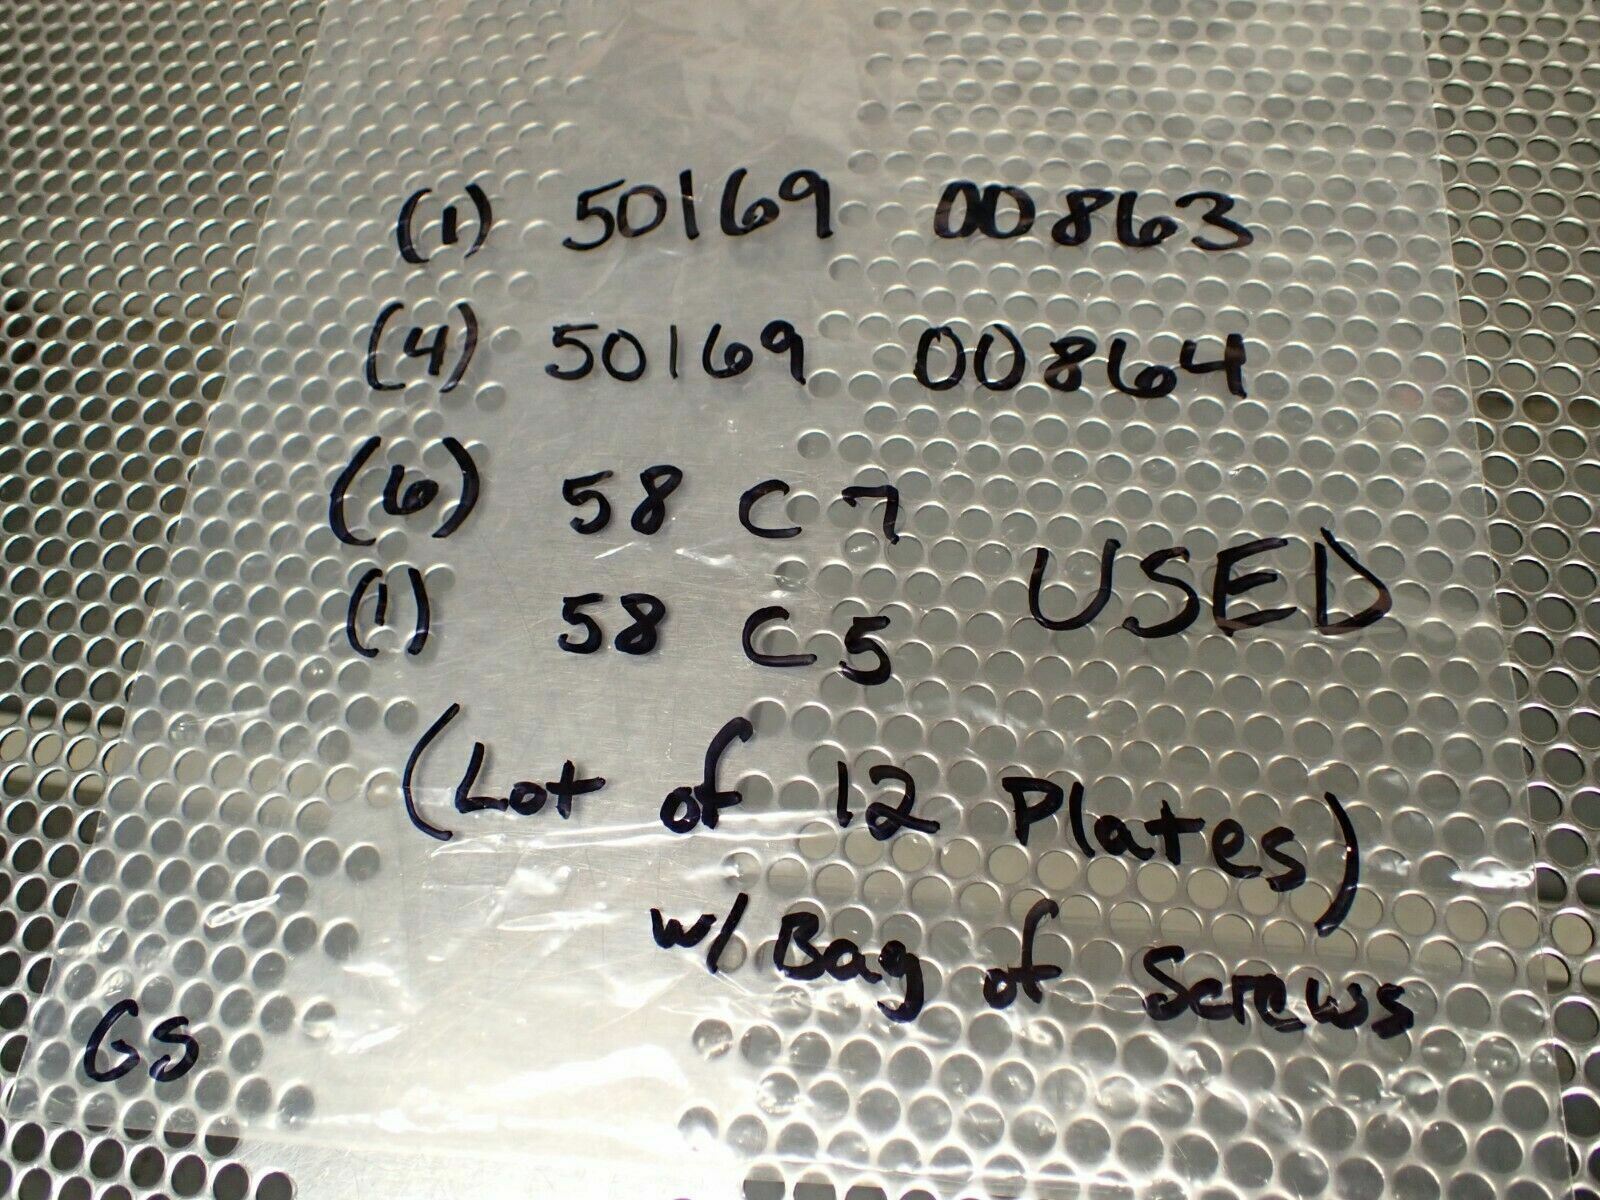 (1) 50169 00863
(4) 50169 00864
(6) 58 C 7
(1) 58 C 5
USED
(Lot of 12 Plates)
w/ Bag of Screws
GS